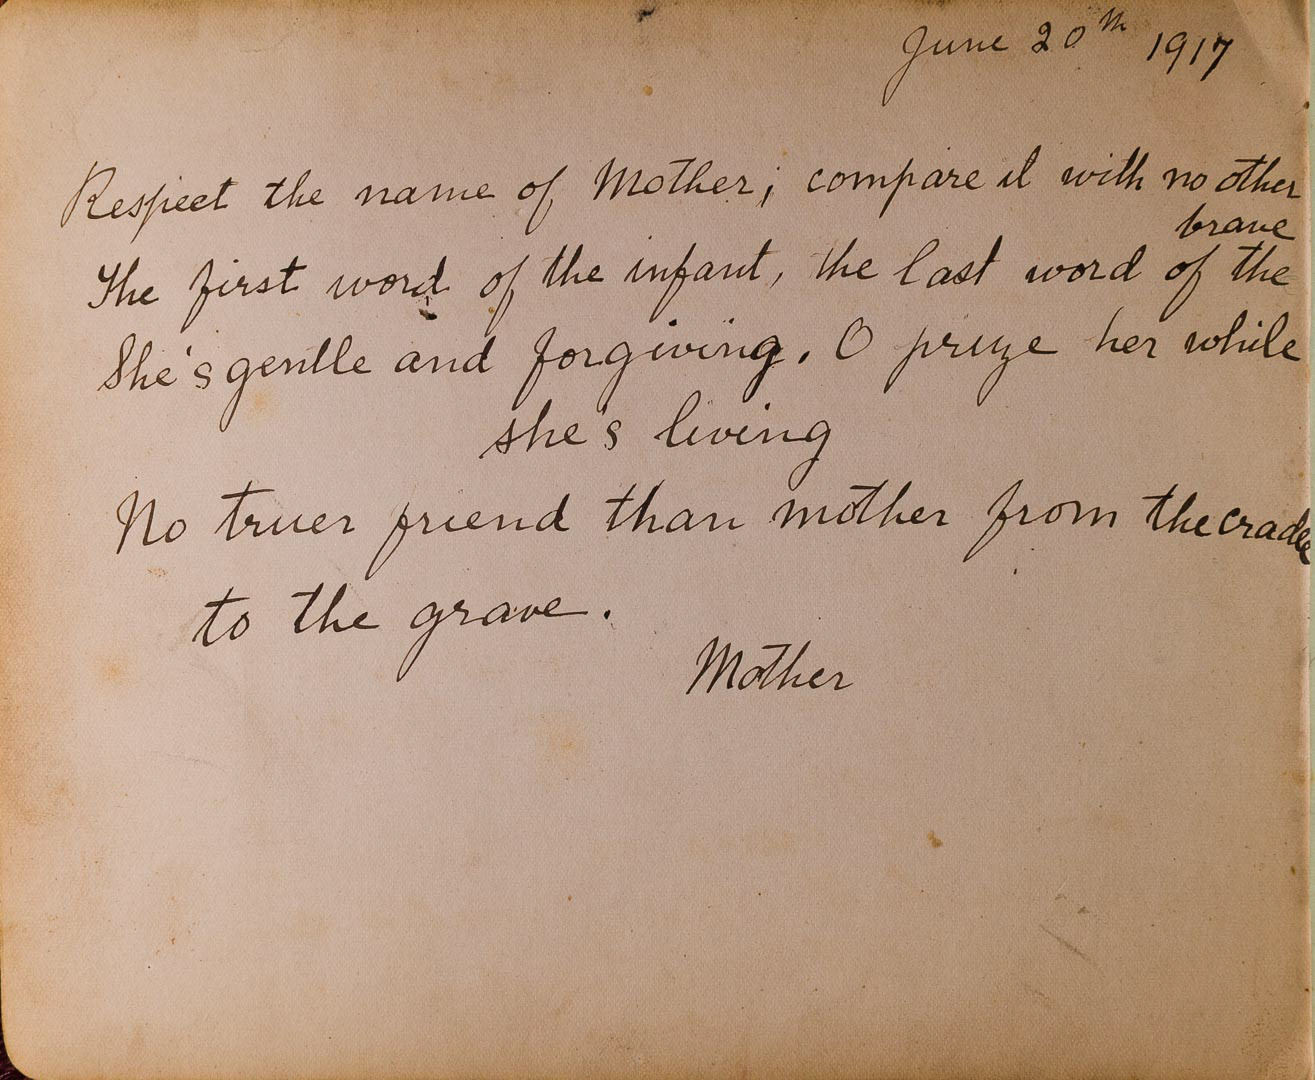 June 20th 1917
Respect the name of Mother; compare it with no other
brave
The first word of the infant, the last word of the
She's gentle and forgiving. O prize her while
she's living
No truer friend than mother from the cradle
to the grave.
Mother